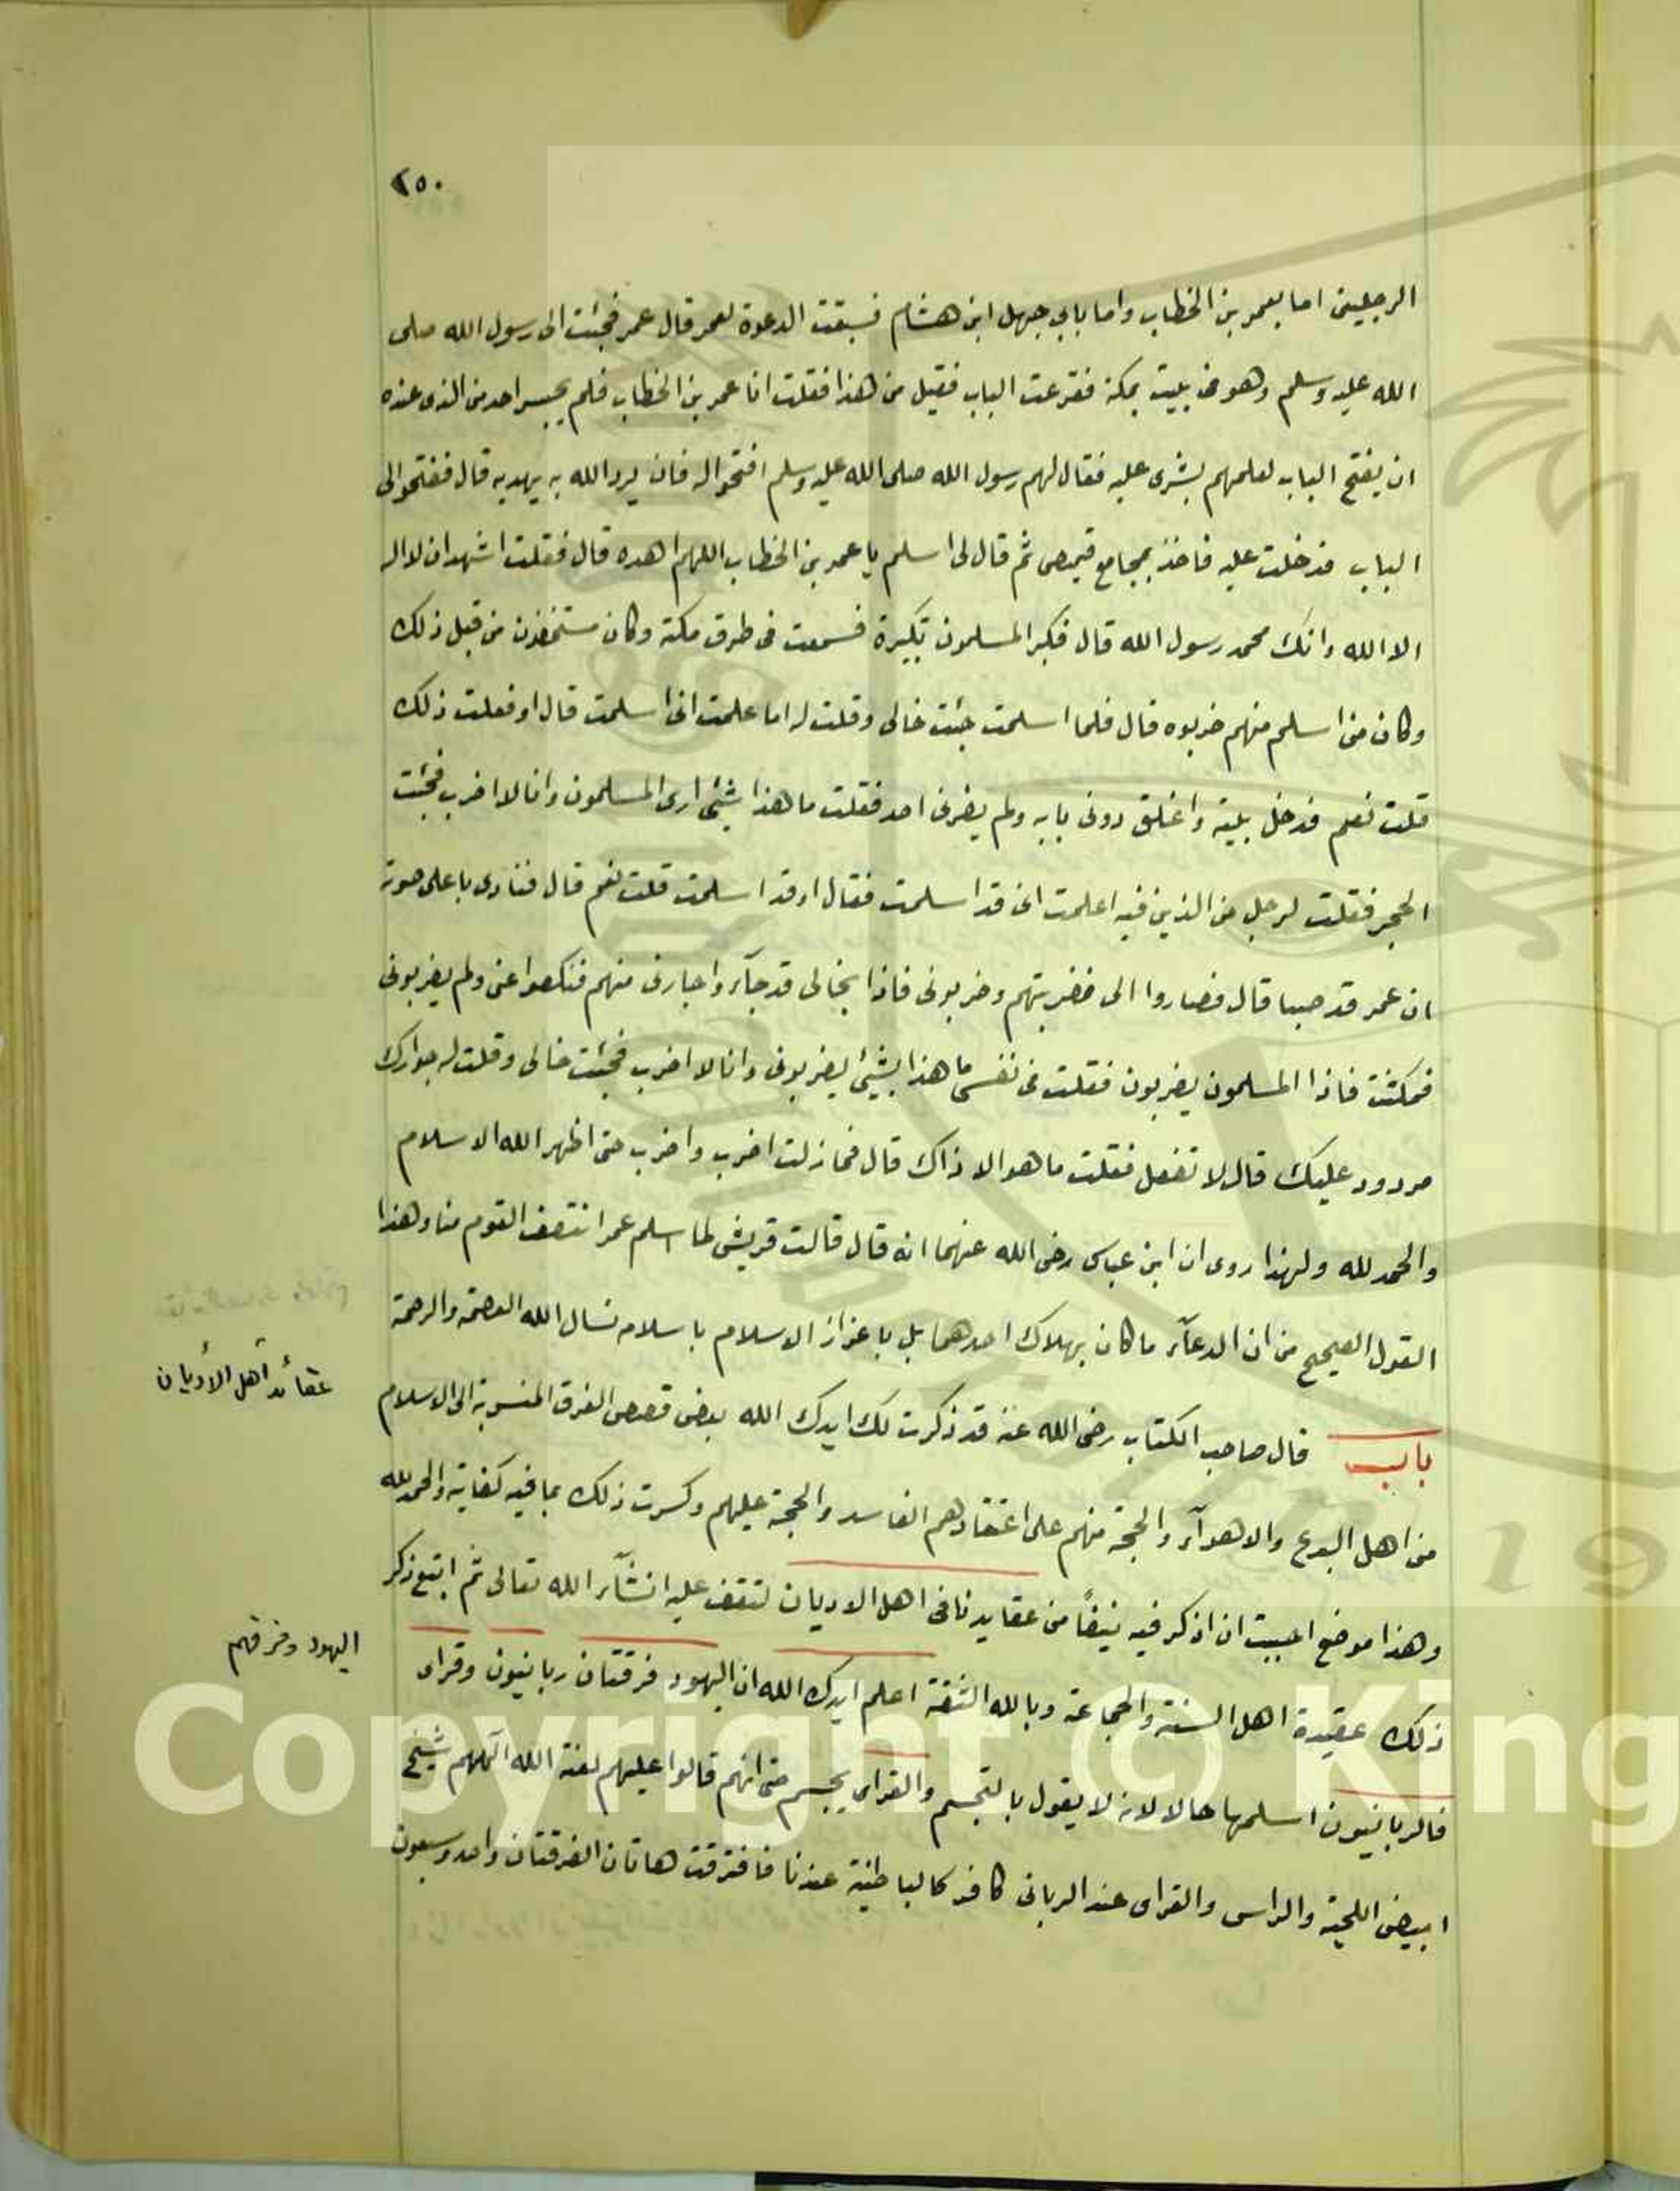 ٢٥٠
الرجلين اما بعمر بن الخطاب واما بابي جهل ابن هشام فسبقت الدعوة لعمر قال عمر فجئت الى رسول الله صلى
الله عليه وسلم وهو في بيت بمكة فقرعت الباب فقيل من هذا فقلت انا عمر بن الخطاب فلم يجسر احد من الذى عنده
ان يفتح الباب لعلمهم بشرى عليه فقال لهم رسول الله صلى الله عليه وسلم افتحوا له فان يرد الله به يهديه قال ففتحوا لى
الباب فدخلت عليه فاخذ بمجامع قميصى ثم قال لى اسلم يا عمر بن الخطاب اللهم اهده قال فقلت اشهد ان لا اله
الا الله وانك محمد رسول الله قال فكبر المسلمون تكبيرة فسمعت فى طرق مكة وكان مستخفون من قبل ذلك
وكان من اسلم منهم ضربوه قال فلما اسلمت جئت خالى وقلت له اما علمت انى اسلمت قال او فعلت ذلك
قلت نعم فدخل بيته واغلق دونى بابه ولم يضرنى احد فقلت ما هذا بشئ ارى المسلمون وانا لا اضرب فجئت
الحجر فقلت لرجل من الذين فيه اعلمت انى قد اسلمت فقال او قد اسلمت قلت نعم قال فنادى باعلى صوته
ان عمر قد صبا قال فصاروا الى فضربتهم وضربونى فاذا بخالى قد جآء واجارنى منهم فنكصوا عنى ولم يضربونى
فمكثت فاذا المسلمون يضربون فقلت فى نفسى ما هذا بشئ يضربونى وانا لا اضرب فجئت خالى وقلت له جوارك
مردود عليك قال لا تفعل فقلت ما هو الا ذاك قال فما زلت اضرب واضرب حتى اظهر الله الاسلام
والحمد لله ولهذا روى ان ابن عباس رضى الله عنهما انه قال قالت قريش لما اسلم عمر انتصف القوم منا وهذا
القول الصحيح من ان الدعآء ما كان بهلاك احدهما بل باعزاز الاسلام باسلامه نسال الله العصمة والرحمة
عقائد أهل الأديان
باب قال صاحب الكتاب رضى الله عنه قد ذكرت لك ايدك الله بعض قصص الفرق المنسوبة الى الاسلام
من اهل البدع والاهوآء والحجة منهم على اعتقادهم الفاسد والحجة عليهم وكسرت ذلك بما فيه كفاية والحمد لله
وهذا موضع احببت ان اذكر فيه نيفاً من عقايدنا فى اهل الاديان لتقف عليه انشآء الله تعالى ثم اتبع ذكر
اليهود وفرقهم
ذلك عقيدة اهل السنة والجماعة وبالله الثقة اعلم ايدك الله ان اليهود فرقتان ربانيون وقراى
فالربانيون اسلمها حالا لانه لا يقول بالتجسم والقراى يجسم حتى انهم قالوا عليهم لعنة الله الٓههم شيخ
ابيض اللحية والراس والقراى عند الربانى كافر كالباطنية عندنا فافترقت هاتان الفرقتان واحد وسبعون
Copyright © King
19